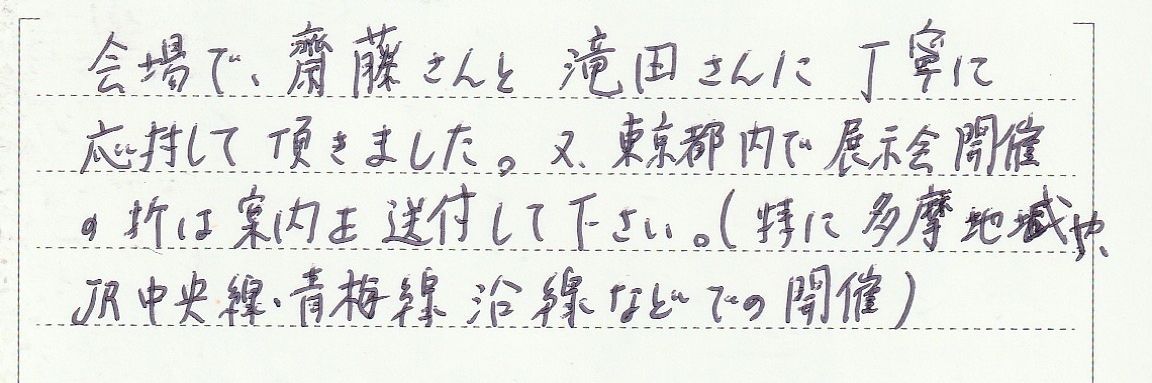 会場で、齋藤さんと滝田さんに丁寧に
応対して頂きました。又、東京都内で展示会開催
の折は案内を送付して下さい。(特に多摩地域や、
JR中央線・青梅線沿線などでの開催)